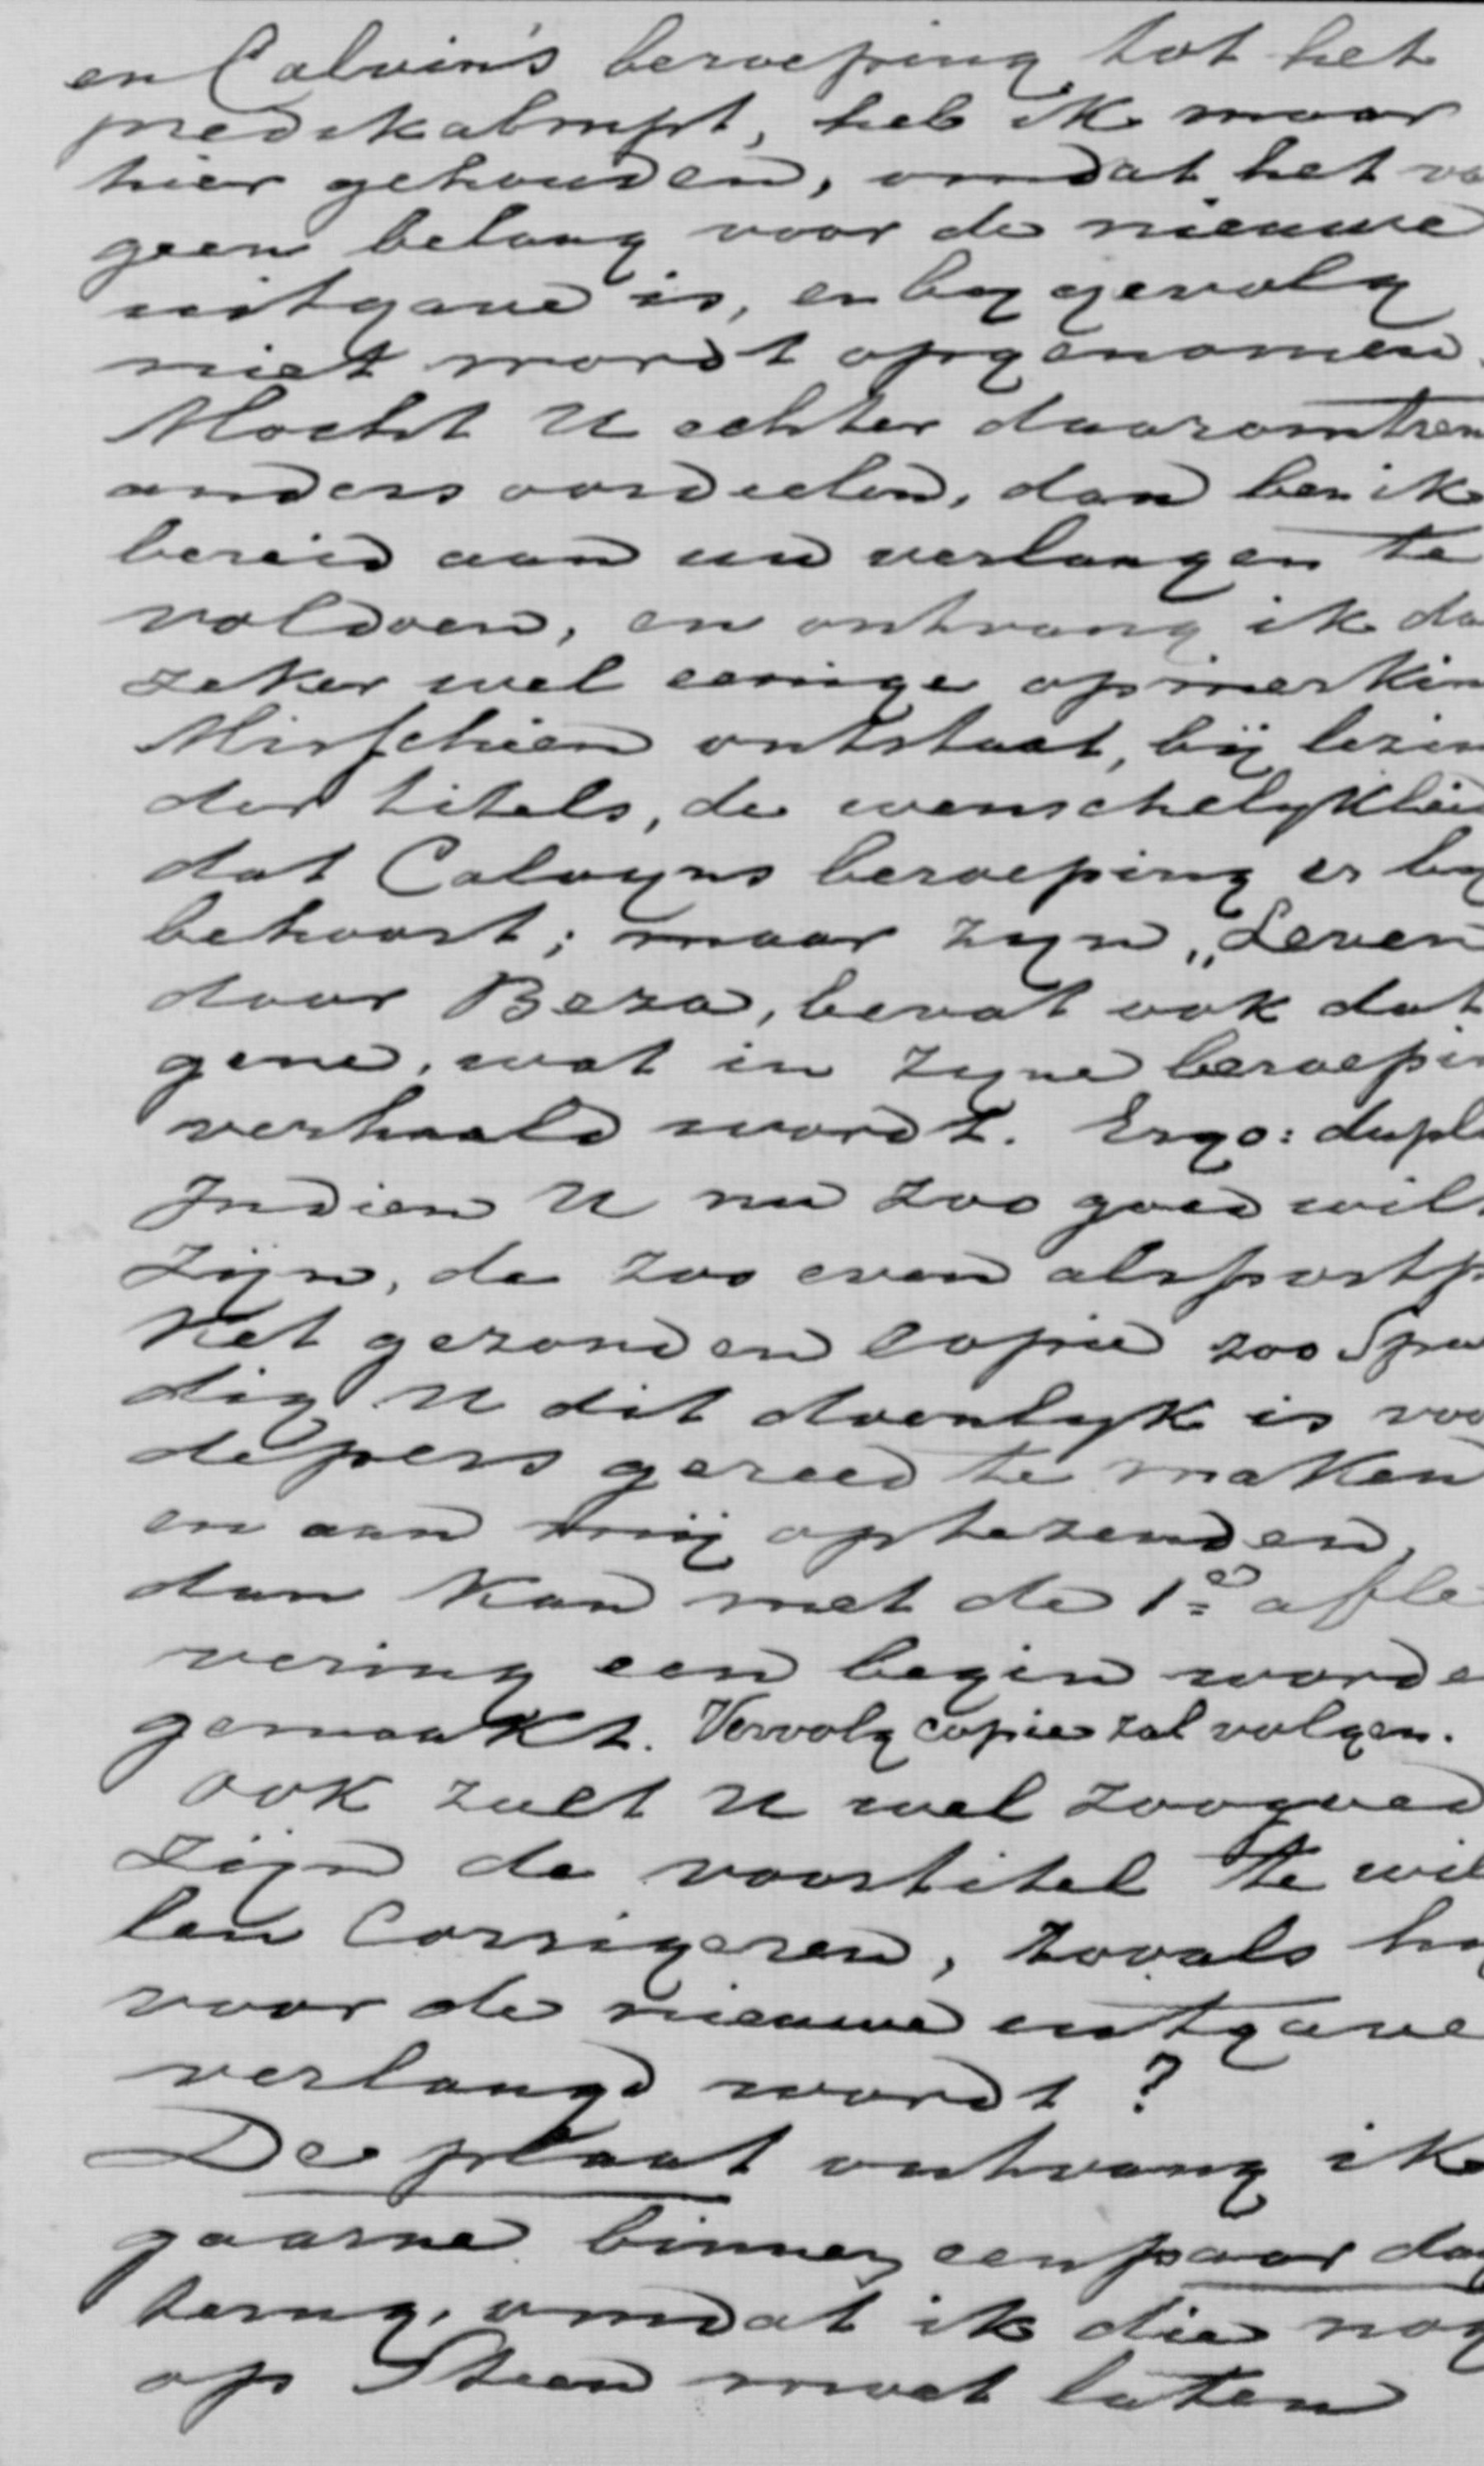 en Calvin's beroeping tot het
predikabmpt, heb ik maar
hier gehouden, omdat het va
geen belang voor de nieuwe
uitgave is, en bygevolg
niet wordt opgenomen.
Mocht U echter daaromtren
anders oordeelen, dan ben ik
bereid aan uw verlangen te
voldoen, en ontvang ik da
zeker wel eenige opmerkin
Misschien ontstaat, bij lezin
der titels, de wenschelykhei
dat Calvyns beroeping er by
behoort; maar zyn „Leven
door Beza, bevat ook dat
gene, wat in zyne beroepin
verhaald wordt. Ergo: dupl
Indien U nu zoo goed wilt
zijn, de zoo even als postp
ket gezonden copie zoo spoe
dig U dit doenlyk is voo
de pers gereed te maken
en aan mij optezenden,
dan kan met de 1e afle
vering een begin worde
gemaakt. Vervolg copie zal volgen.
Ook zult U wel zoo goed
zijn de voortitel te wil
len corrigeren, zooals hy
voor de nieuwe uitgave
verlangd wordt?
De plaat ontvang ik
gaarne binnen een paar dag
terug, omdat ik die nog
op Steen moet laten